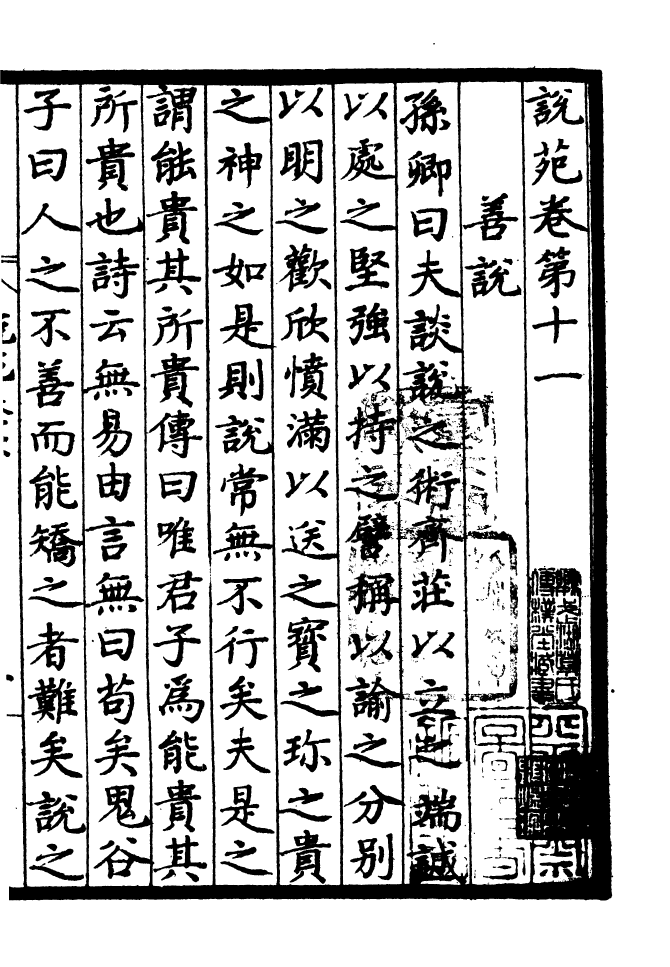 說苑卷第十一
善說
孫卿曰夫談說之術齊莊以立之端誠
以處之堅強以持之譬稱以諭之分别
以明之歡欣憤滿以送之寶之珍之貴
之神之如是則說常無不行矣夫是之
謂能貴其所貴傳曰唯君子爲能貴其
所貴也詩云無易由言無曰苟矣鬼谷
子曰人之不善而能矯之者難矣說之